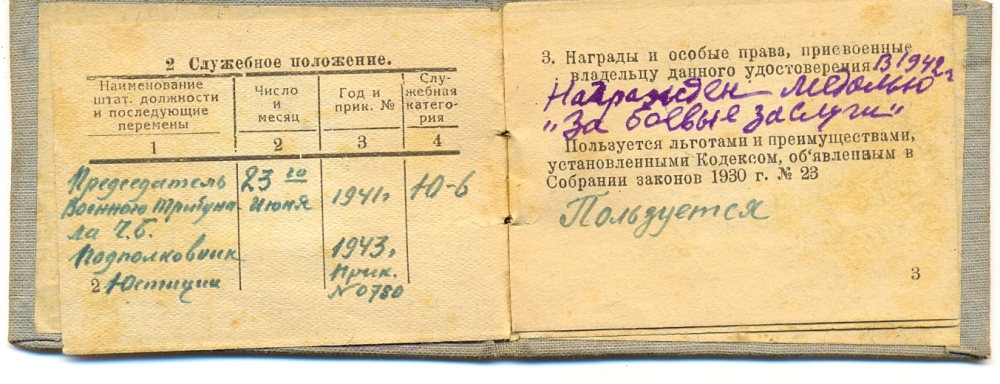 2 Служебное положение.
Наименование
штат. должности
и последующие
перемены
Число
и
месяц
Год и
прик. №
Слу-
жебная
катего-
рия
1 2 3 4
Председатель 23 го 1941г Ю-6
Военного Трибуна- Июня
ла Ч.Б.
Подполковник 1943г
Юстиции Прик.
№0750
2
3. Награды и особые права, присвоенные
владельцу данного удостоверения В 1942г
Награжден Медалью
"За боевые заслуги"
Пользуется льготами и преимуществами,
установленными Кодексом, об'явленным в
Собрании законов 1930 г. № 23
Пользуется
3